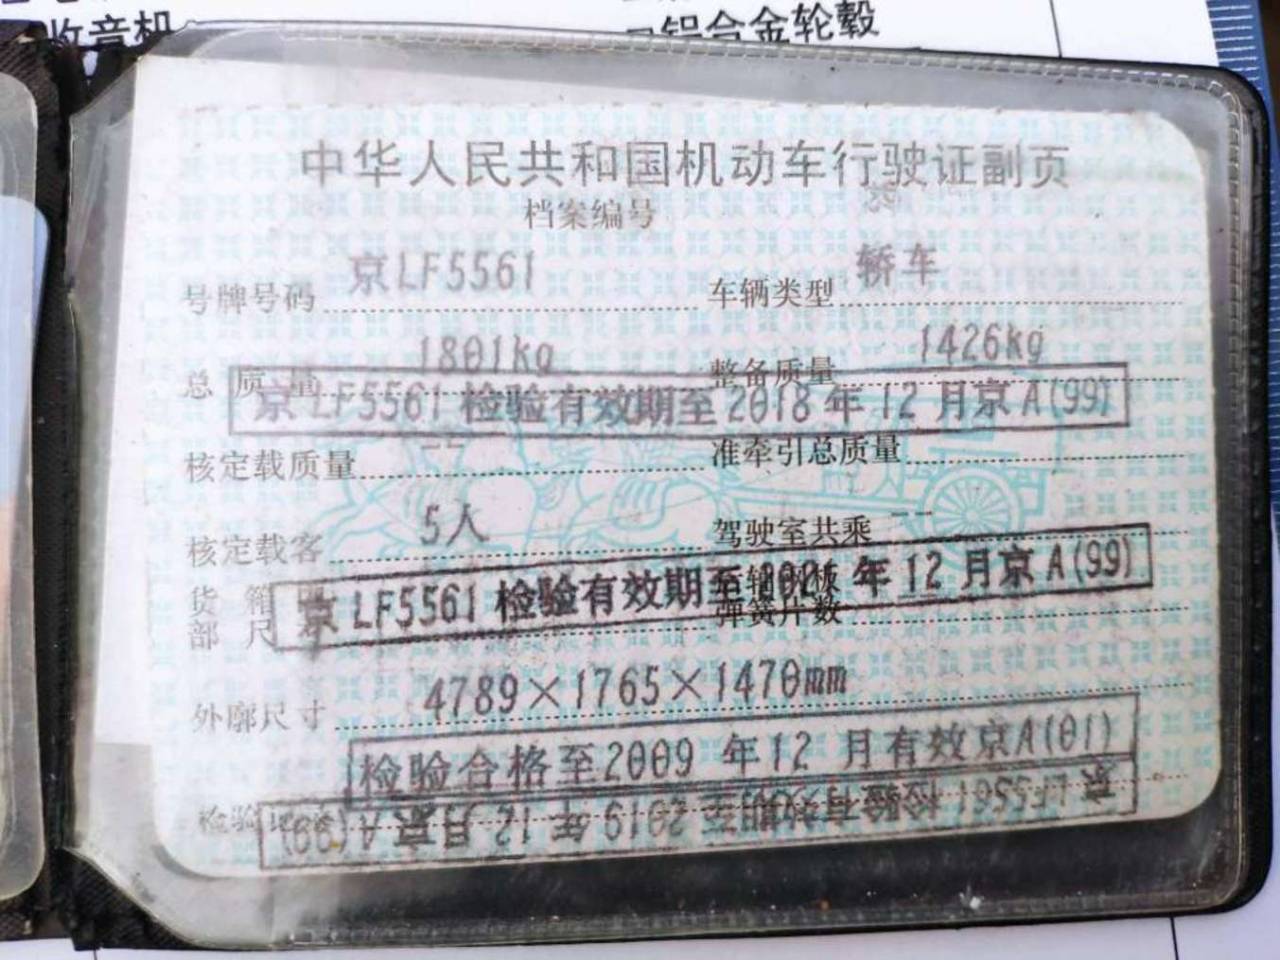 收音机
铝合金轮毂
中华人民共和国机动车行驶证副页
档案编号
号牌号码 京LF5561 车辆类型 轿车
总质量 1801kg 整备质量 1426kg
京LF5561 检验有效期至2018年12月京A(99)
核定载质量 -- 准牵引总质量
核定载客 5人 驾驶室共乘 --
货箱
部尺
京LF5561 检验有效期至2021年12月京A(99)
弹簧片数
外廓尺寸 4789×1765×1470mm
检验合格至2009年12月有效京A(01)
检验
京LF5561 检验有效期至2019年12月京A(99)